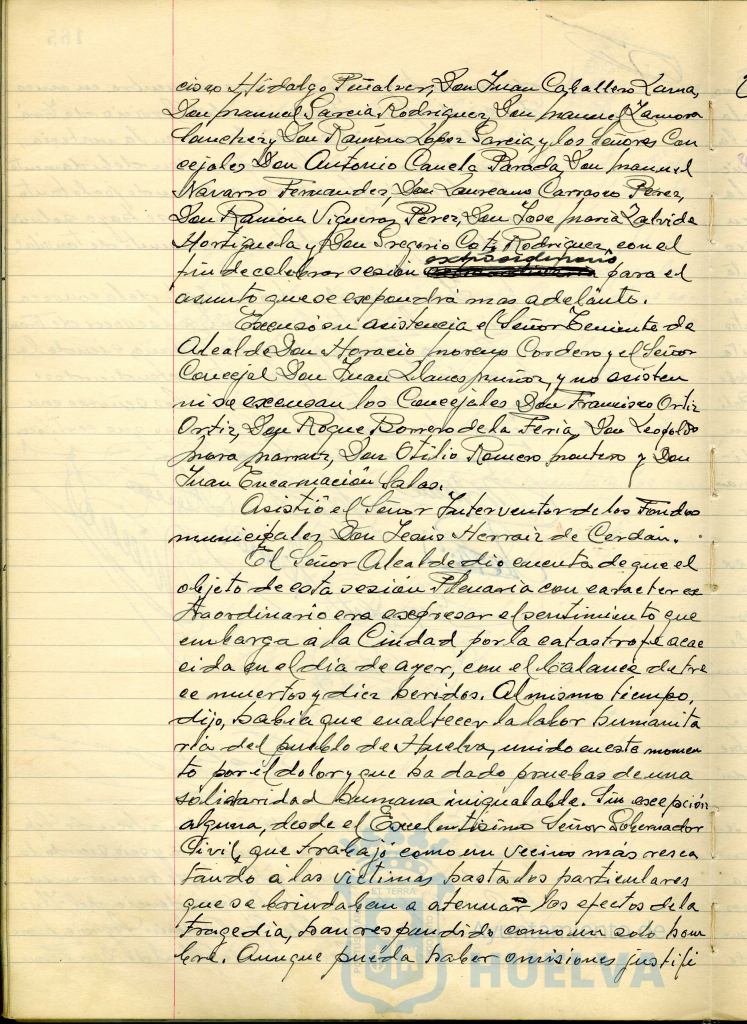 cisco Hidalgo Piñalver, Don Juan Caballero Lama,
Don Manuel Garcia Rodriguez, Don Manuel Zamora
Sanchez y Don Ramon Lopez Garcia, y los Señores Con
cejales Don Antonio Canela Parada, Don Manuel
Navarro Fernandez, Don Laureano Carrasco Perez,
Don Ramón Vigueras Perez, Don Jose Maria Zalvide
Hortigüela y Don Gregorio Rodriguez, con el
extraordinario
fin de celebrar sesión para el
asunto que se expondrá mas adelante.
Excusó su asistencia el Señor Teniente de
Alcalde Don Horacio Moreno Cordero y el Señor
Concejal Don Juan Llanes Muñoz, y no asisten
ni se excusan los Concejales Don Francisco Ortiz
Ortiz, Don Roque Borrero de la Feria, Don Leopoldo
Mora, Don Otilio Romero Montero y Don
Juan Encarnación Salas.
Asistió el Señor Interventor de los Fondos
municipales Don Jesús Herraiz de Cerdán.
El Señor Alcalde dio cuenta de que el
objeto de esta sesión Plenaria con caracter ex
traordinario era expresar el sentimiento que
embarga a la Ciudad por la catastrofe acae
cida en el día de ayer, con el balance de tre
ce muertos y diez heridos. Al mismo tiempo,
dijo, había que enaltecer la labor humanita
ria del pueblo de Huelva, unido en este momen
to por el dolor y que ha dado pruebas de una
solidaridad humana inigualable. Sin excepción
alguna, desde el Excelentísimo Señor Gobernador
Civil, que trabajó como un vecino más resca
tando a las victimas hasta los particulares
que se brindaban a atenuar los efectos de la
tragedia, han respondido como un solo hom
bre. Aunque pueda haber omisiones justifi
Ayuntamiento de
HUELVA